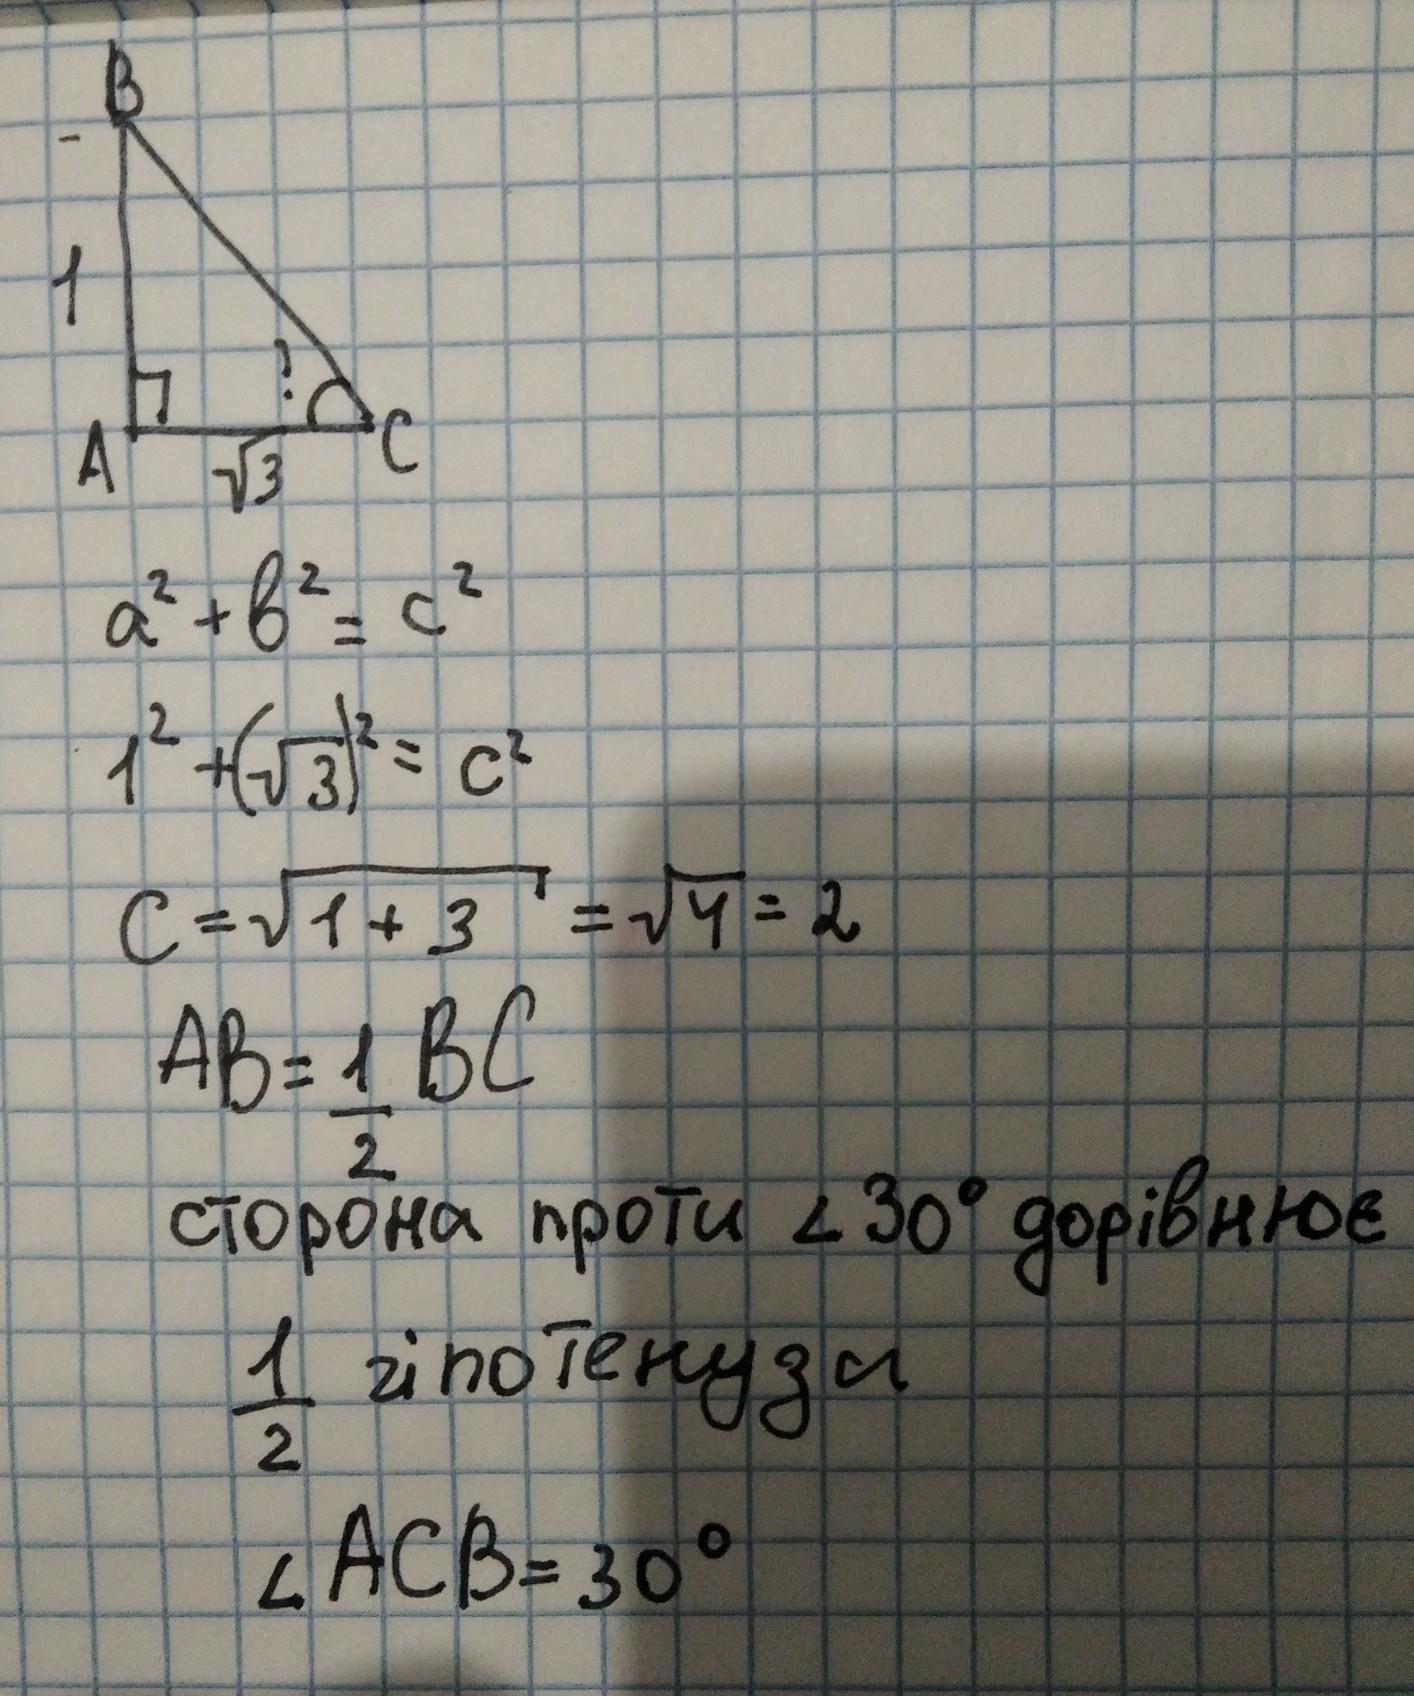 B
1
?
A
√3
C
a² + b² = c²
1² + (√3)² = c²
C = √1 + 3 = √4 = 2
AB = 1/2 BC
сторона проти ∠30° дорівнює
1/2 гіпотенузи
∠ACB = 30°